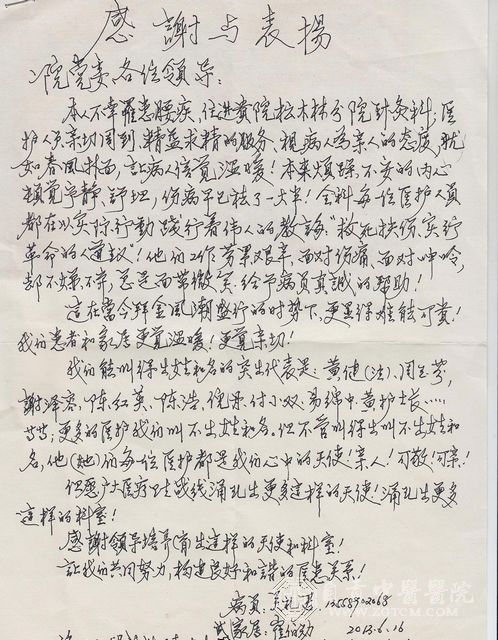 感謝与表揚
院党委各位领导：
本人不幸罹患腰疾，住进贵院松木林分院针灸科，医
护人员亲切周到、精益求精的服务、视病人为亲人的态度，犹
如春风拂面，让病人倍觉温暖！本来烦躁、不安的内心
顿觉宁静、舒坦，伤病早已祛了一大半！全科每一位医护人员
都在以实际行动践行着伟人的教誨：“救死扶伤，实行
革命的人道主义”！他们工作劳累艰辛，面对伤痛、面对呻吟，
却不嫌不弃，总是面带微笑，给予病员真誠的帮助！
这在當今拜金風潮盛行的时势下，更显得难能可貴！
我们患者和家属更覺温暖！更覺亲切！
我们能叫得出姓和名的突出代表是：黄健（法）、周玉芳，
謝泽容、陈红英、陈浩、倪泺、付小双、易维中、黄护士长……
等等；更多的医护我们叫不出姓和名。但不管叫得出叫不出姓和
名，他（她）们每一位医护都是我们心中的天使！亲人！可敬！可亲！
但愿广大医疗卫生战线涌现出更多这样的天使！涌现出更多
这样的科室！
感謝领导培养（育）出这样的天使和科室！
让我们共同努力，构建良好和諧的医患关系！
病員：
家属：
2013.6.16
自贡市中醫醫院
WWW.ZGTCM.COM